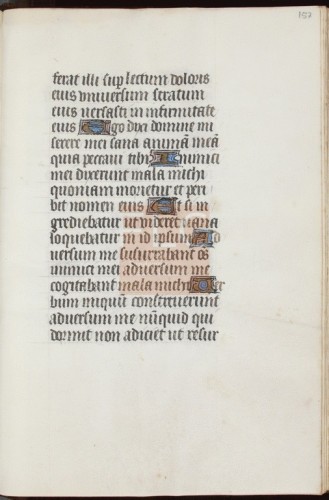 157
ferat illi sup lectum doloris
eius vniuersum stratum
eius versasti in infirmitate
eius Ego dixi domine mi
serere mei sana animā meā
quia peccaui tibi Inimici
mei dixerunt mala michi
quoniam morietur et peri
bit nomen eius Et si in
grediebatur ut videret vana
loquebatur in id ipsum Ad
uersum me susurrabant os
inimici mei aduersum me
cogitabant mala michi Uer
bum iniquū constituerunt
aduersum me nūquid qui
dormit non adiciet ut resur